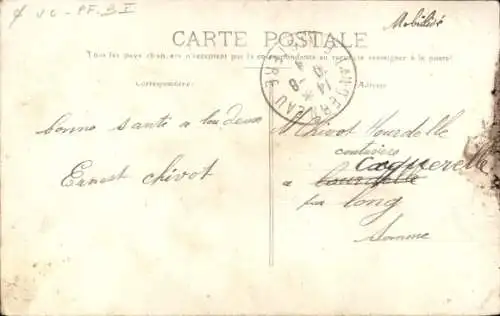 VC - PF. 3 I
Mobilisé
CARTE POSTALE
Tous les pays étrangers n'acceptent pas la correspondance au recto, se renseigner à la poste
Correspondance
Adresse
bonne santé a tou deux
Ernest Chivot
M Chivot Hourdelle
couturière
a Coquerelle
par Long
Somme